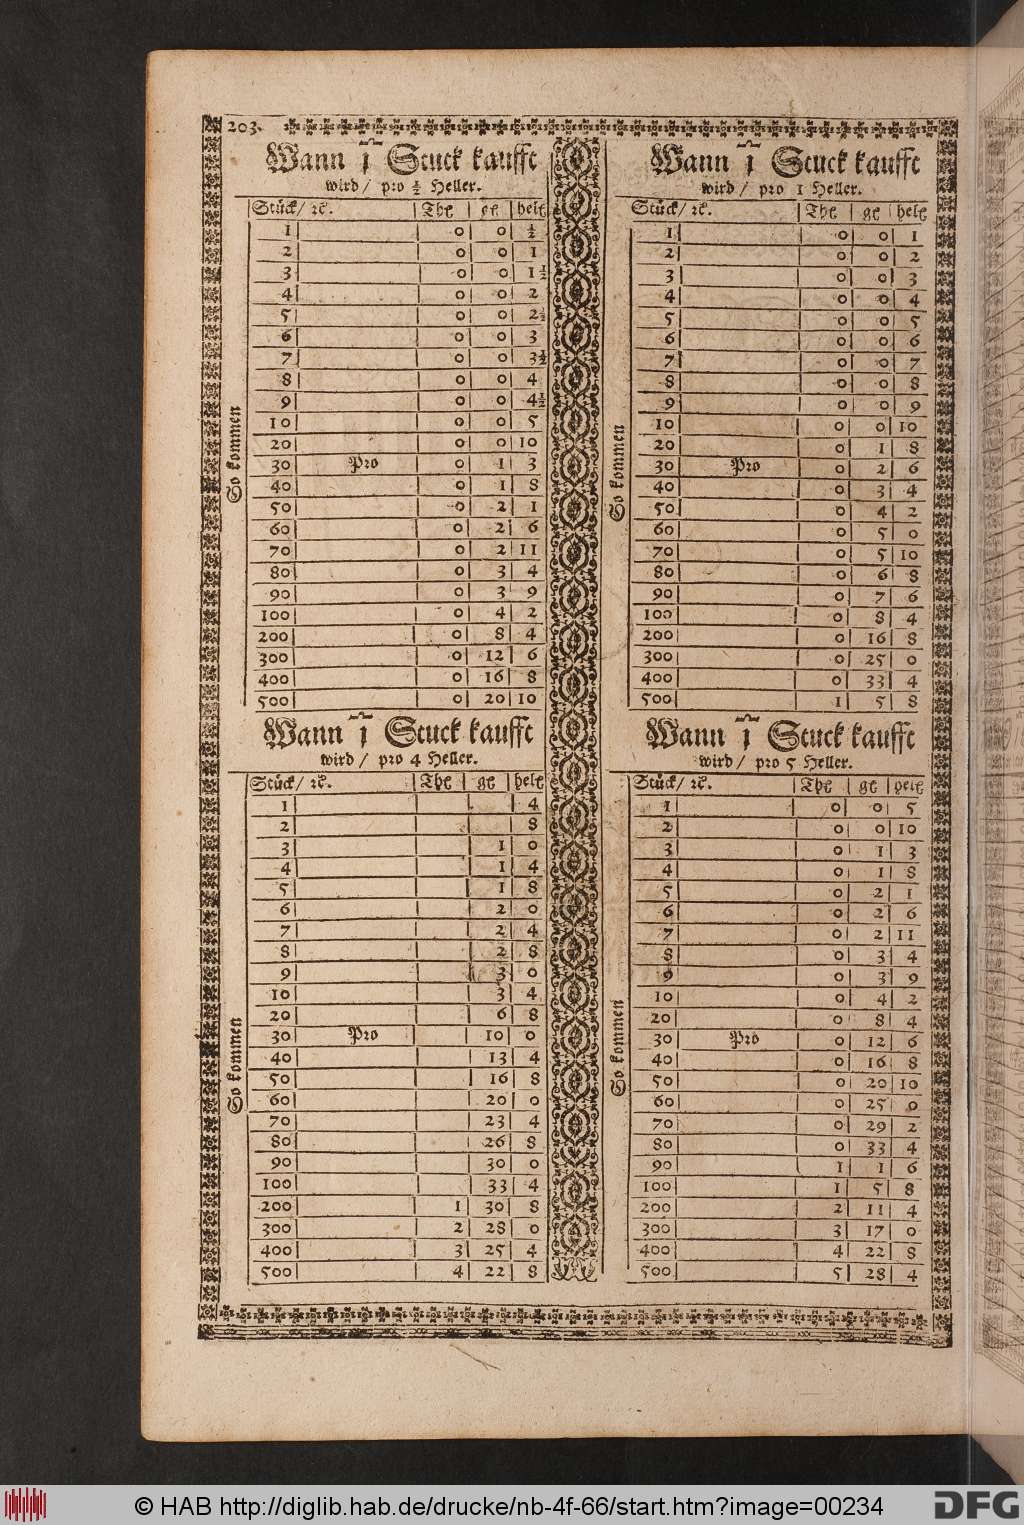 203.
Wann 1 Stuck kaufft
wird / pro ½ Heller.
Stück / ꝛc. Thl gl helr
So kommen
1 0 0 ½
2 0 0 1
3 0 0 1½
4 0 0 2
5 0 0 2½
6 0 0 3
7 0 0 3½
8 0 0 4
9 0 0 4½
10 0 0 5
20 0 0 10
30 Pro 0 1 3
40 0 1 8
50 0 2 1
60 0 2 6
70 0 2 11
80 0 3 4
90 0 3 9
100 0 4 2
200 0 8 4
300 0 12 6
400 0 16 8
500 0 20 10
Wann 1 Stuck kaufft
wird / pro 1 Heller.
Stück / ꝛc. Thl gl helr
So kommen
1 0 0 1
2 0 0 2
3 0 0 3
4 0 0 4
5 0 0 5
6 0 0 6
7 0 0 7
8 0 0 8
9 0 0 9
10 0 0 10
20 0 1 8
30 Pro 0 2 6
40 0 3 4
50 0 4 2
60 0 5 0
70 0 5 10
80 0 6 8
90 0 7 6
100 0 8 4
200 0 16 8
300 0 25 0
400 0 33 4
500 1 5 8
Wann 1 Stuck kaufft
wird / pro 4 Heller.
Stück / ꝛc. Thl gl helr
So kommen
1 4
2 8
3 1 0
4 1 4
5 1 8
6 2 0
7 2 4
8 2 8
9 3 0
10 3 4
20 6 8
30 Pro 10 0
40 13 4
50 16 8
60 20 0
70 23 4
80 26 8
90 30 0
100 33 4
200 1 30 8
300 2 28 0
400 3 25 4
500 4 22 8
Wann 1 Stuck kaufft
wird / pro 5 Heller.
Stück / ꝛc. Thl gl helr
So kommen
1 0 0 5
2 0 0 10
3 0 1 3
4 0 1 8
5 0 2 1
6 0 2 6
7 0 2 11
8 0 3 4
9 0 3 9
10 0 4 2
20 0 8 4
30 Pro 0 12 6
40 0 16 8
50 0 20 10
60 0 25 0
70 0 29 2
80 0 33 4
90 1 1 6
100 1 5 8
200 2 11 4
300 3 17 0
400 4 22 8
500 5 28 4
© HAB http://diglib.hab.de/drucke/nb-4f-66/start.htm?image=00234
DFG